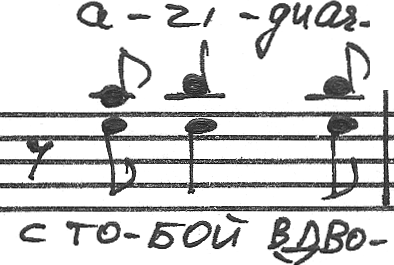 а - zi - диаг-
с то-бой вдво-